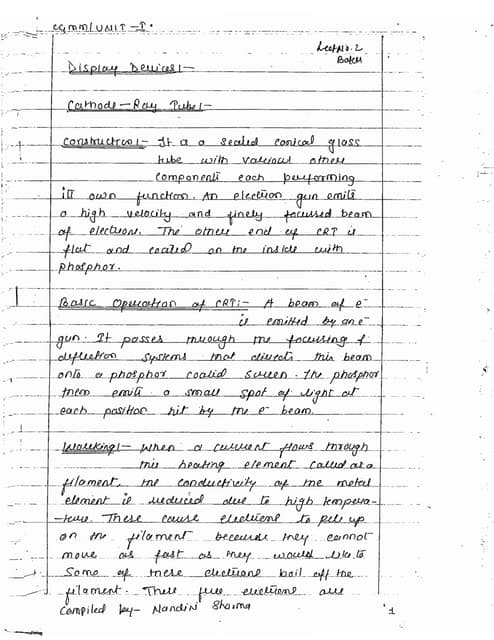 CGMM/UNIT-I
Lect No. 2
Batch
Display Devices:-
Cathode-Ray Tube:-
Construction:- It a a sealed conical glass
tube with various other
components each performing
its own function. An electron gun emits
a high velocity and finely focussed beam
of electrons. The other end of CRT is
flat and coated on the inside with
phosphor.
Basic Operation of CRT:- A beam of e-
is emitted by an e-
gun. It passes through the focussing &
deflection systems that directs this beam
onto a phosphor coated screen. The phosphor
then emits a small spot of light at
each position hit by the e- beam.
Working:- When a current flows through
this heating element called as a
filament, the conductivity of the metal
element is reduced due to high tempera-
-ture. These cause electrons to pile up
on the filament because they cannot
move as fast as they would like to
Some of these electrons boil off the
filament. These free electrons are
Compiled by- Nandini Sharma
1